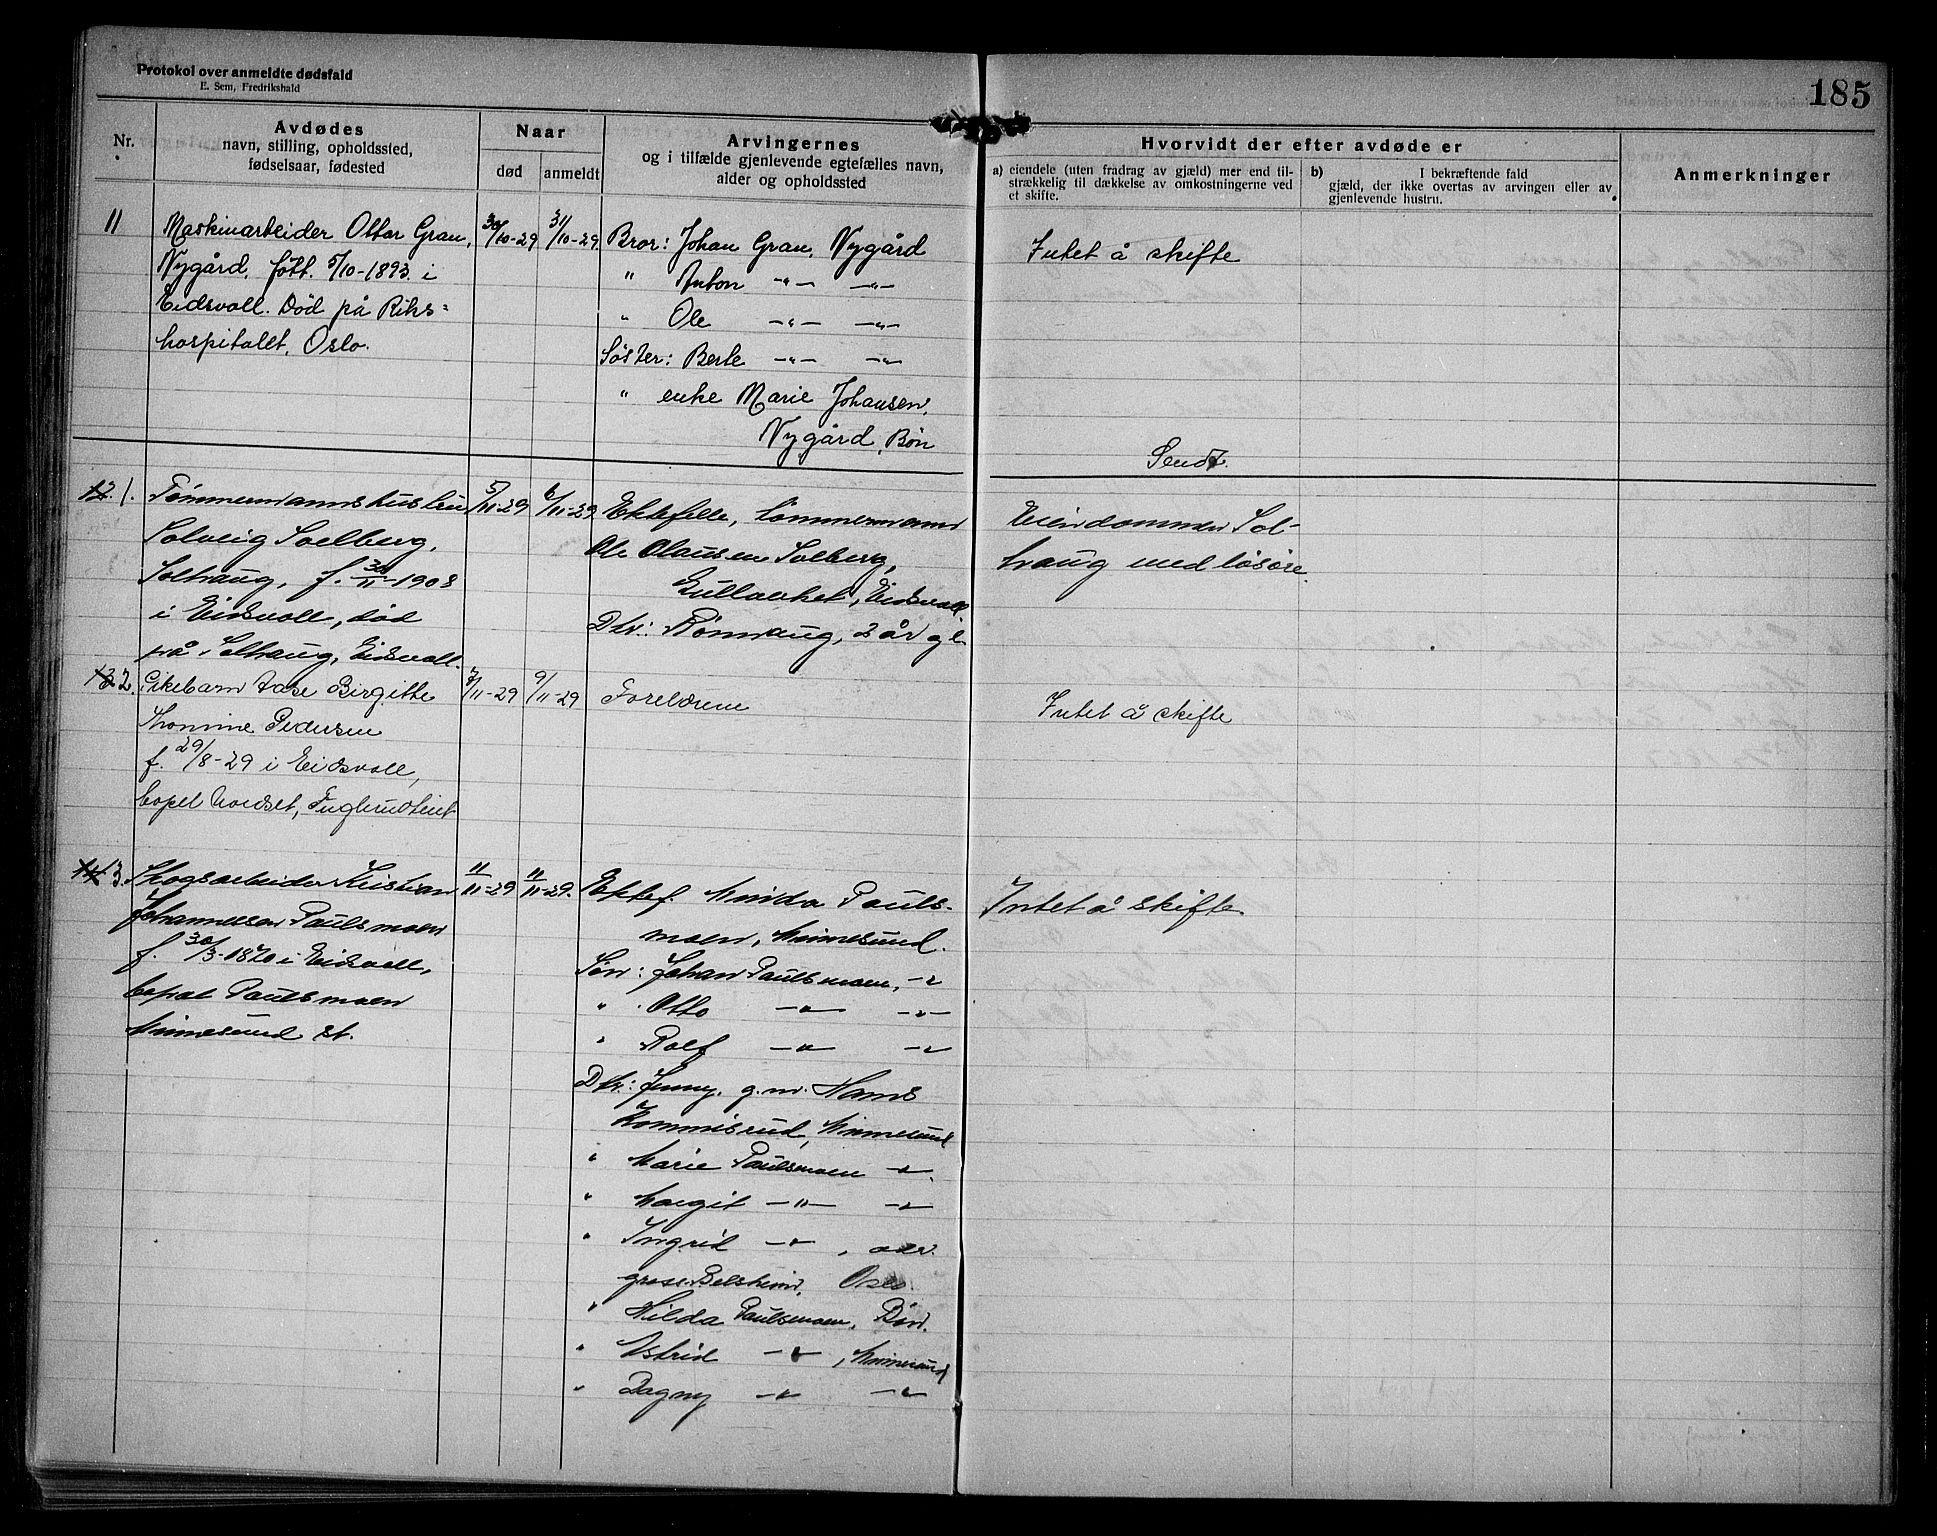 Protokol over anmeldte dødsfald
E. Sem, Fredrikshald
185
Nr.
Avdødes
navn, stilling, opholdssted,
fødselsaar, fødested
Naar
død
anmeldt
Arvingernes
og i tilfælde gjenlevende egtefælles navn,
alder og opholdssted
Hvorvidt der efter avdøde er
a) eiendele (uten fradrag av gjæld) mer end til-
strækkelig til dækkelse av omkostningerne ved
et skifte.
b) I bekræftende fald
gjæld, der ikke overtas av arvingen eller av
gjenlevende hustru.
Anmerkninger
11
Maskinarbeider Ottar Gran,
Nygård, født 5/10-1893 i
Eidsvoll. Død på Riks=
hospitalet, Oslo.
30/10-29
31/10-29
Bror: Johan Gran, Nygård
" Anton -"- -"-
" Ole -"- -"-
Søster: Berte -"- -"-
" enke Marie Johansen,
Nygård, Bøn
Intet å skifte
Sendt.
12. 1.
Tømmermannshustru
Solveig Solberg,
Solhaug, f. 30/11-1908
i Eidsvoll, død
på Solhaug, Eidsvoll.
5/11-29
6/11-29
Ektefelle, tømmermann
Ole Olausen Solberg,
Gullverket, Eidsvoll
Dtr: Rønnaug, 3 år gl.
Eiendommen Sol-
haug med løsøre.
13 2.
Pikebarn Aase Birgitte
Thomine Pedersen
f. 29/8-29 i Eidsvoll,
bopel Nordset, Fuglerudteiet
7/11-29
9/11-29
Foreldrene
Intet å skifte
14 3.
Skogsarbeider Kristian
Johannessen Paulsmoen
f. 30/3-1870 i Eidsvoll,
bopel Paulsmoen
Minnesund st.
11/11-29
11/11-29.
Ektef. Minda Pauls-
moen, Minnesund.
Søn: Johan Paulsmoen, -"-
" Otto -"- -"-
" Rolf -"- -"-
Dtr: Jenny, g.m. Hans
Kommisrud, Minnesund
" Marie Paulsmoen -"-
" Margit -"- -"-
" Ingrid -"- , adr.
Belsheim, Oslo.
" Hilda Paulsmoen, Bøn.
" Astrid -"- , Minnesund
" Dagny -"- -"-
Intet å skifte